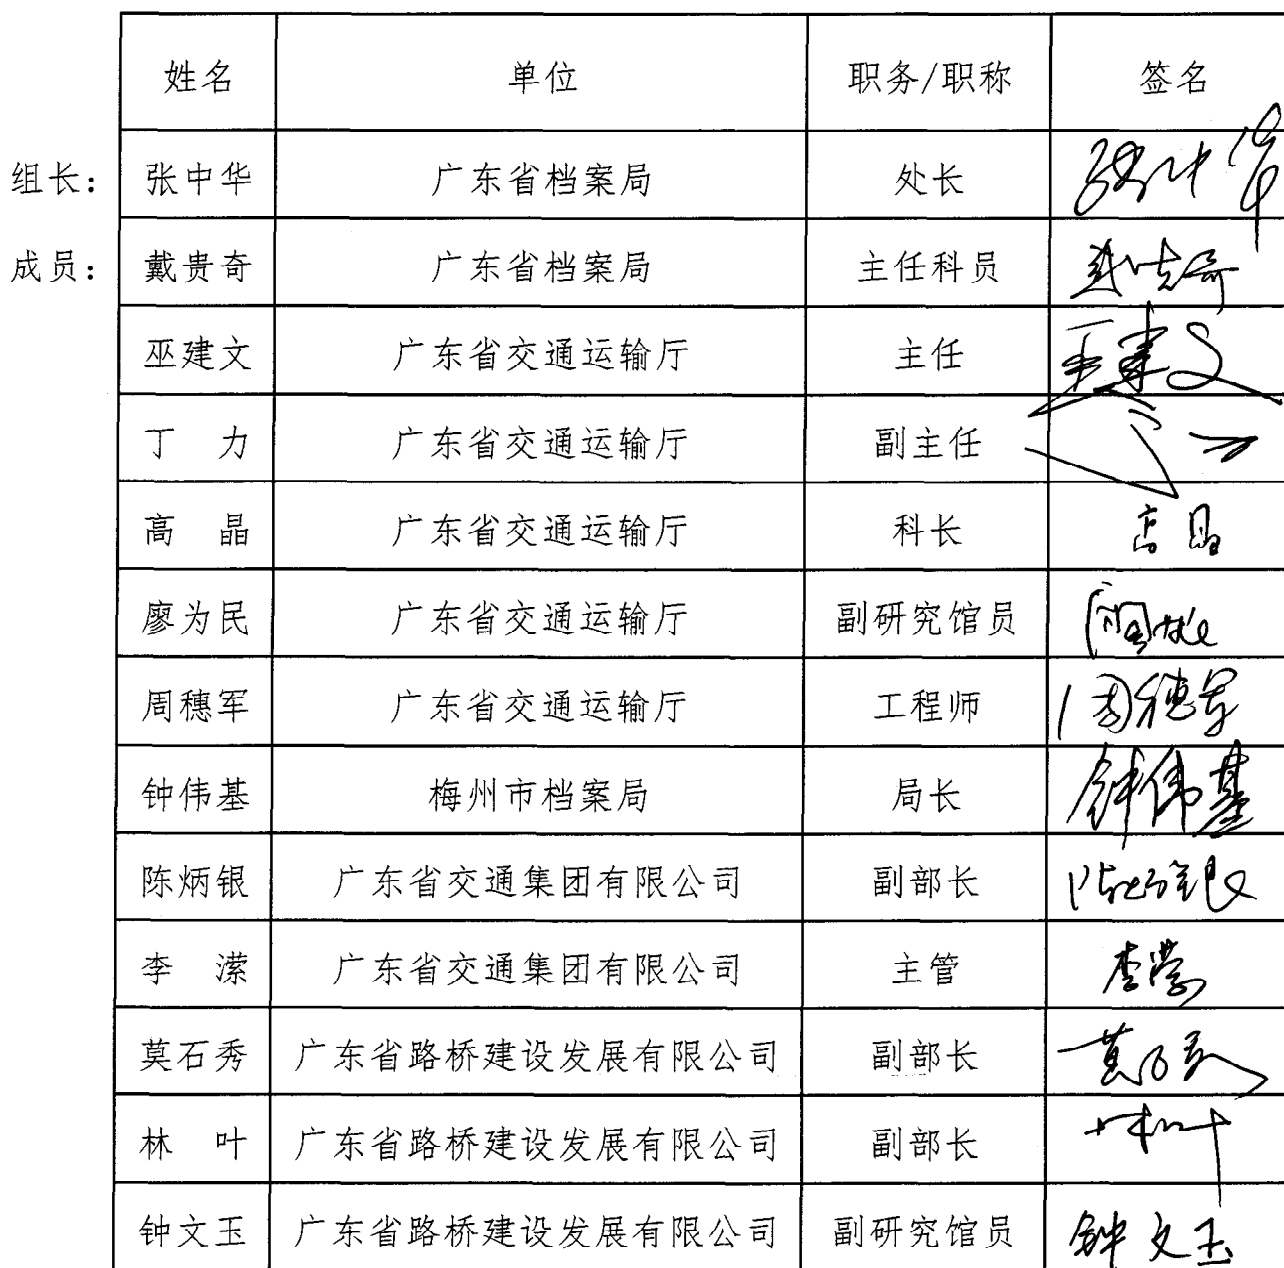 姓名 单位 职务/职称 签名
组长： 张中华 广东省档案局 处长 张中华
成员： 戴贵奇 广东省档案局 主任科员
巫建文 广东省交通运输厅 主任
丁 力 广东省交通运输厅 副主任
高 晶 广东省交通运输厅 科长 高晶
廖为民 广东省交通运输厅 副研究馆员
周穗军 广东省交通运输厅 工程师 周穗军
钟伟基 梅州市档案局 局长 钟伟基
陈炳银 广东省交通集团有限公司 副部长 陈炳银
李 潆 广东省交通集团有限公司 主管 李潆
莫石秀 广东省路桥建设发展有限公司 副部长 莫石秀
林 叶 广东省路桥建设发展有限公司 副部长 林叶
钟文玉 广东省路桥建设发展有限公司 副研究馆员 钟文玉